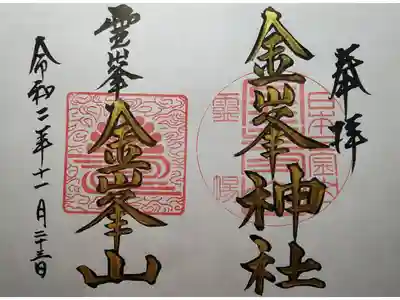 奉拝
金峯神社
霊峯
金峯山
令和二年十一月二十三日